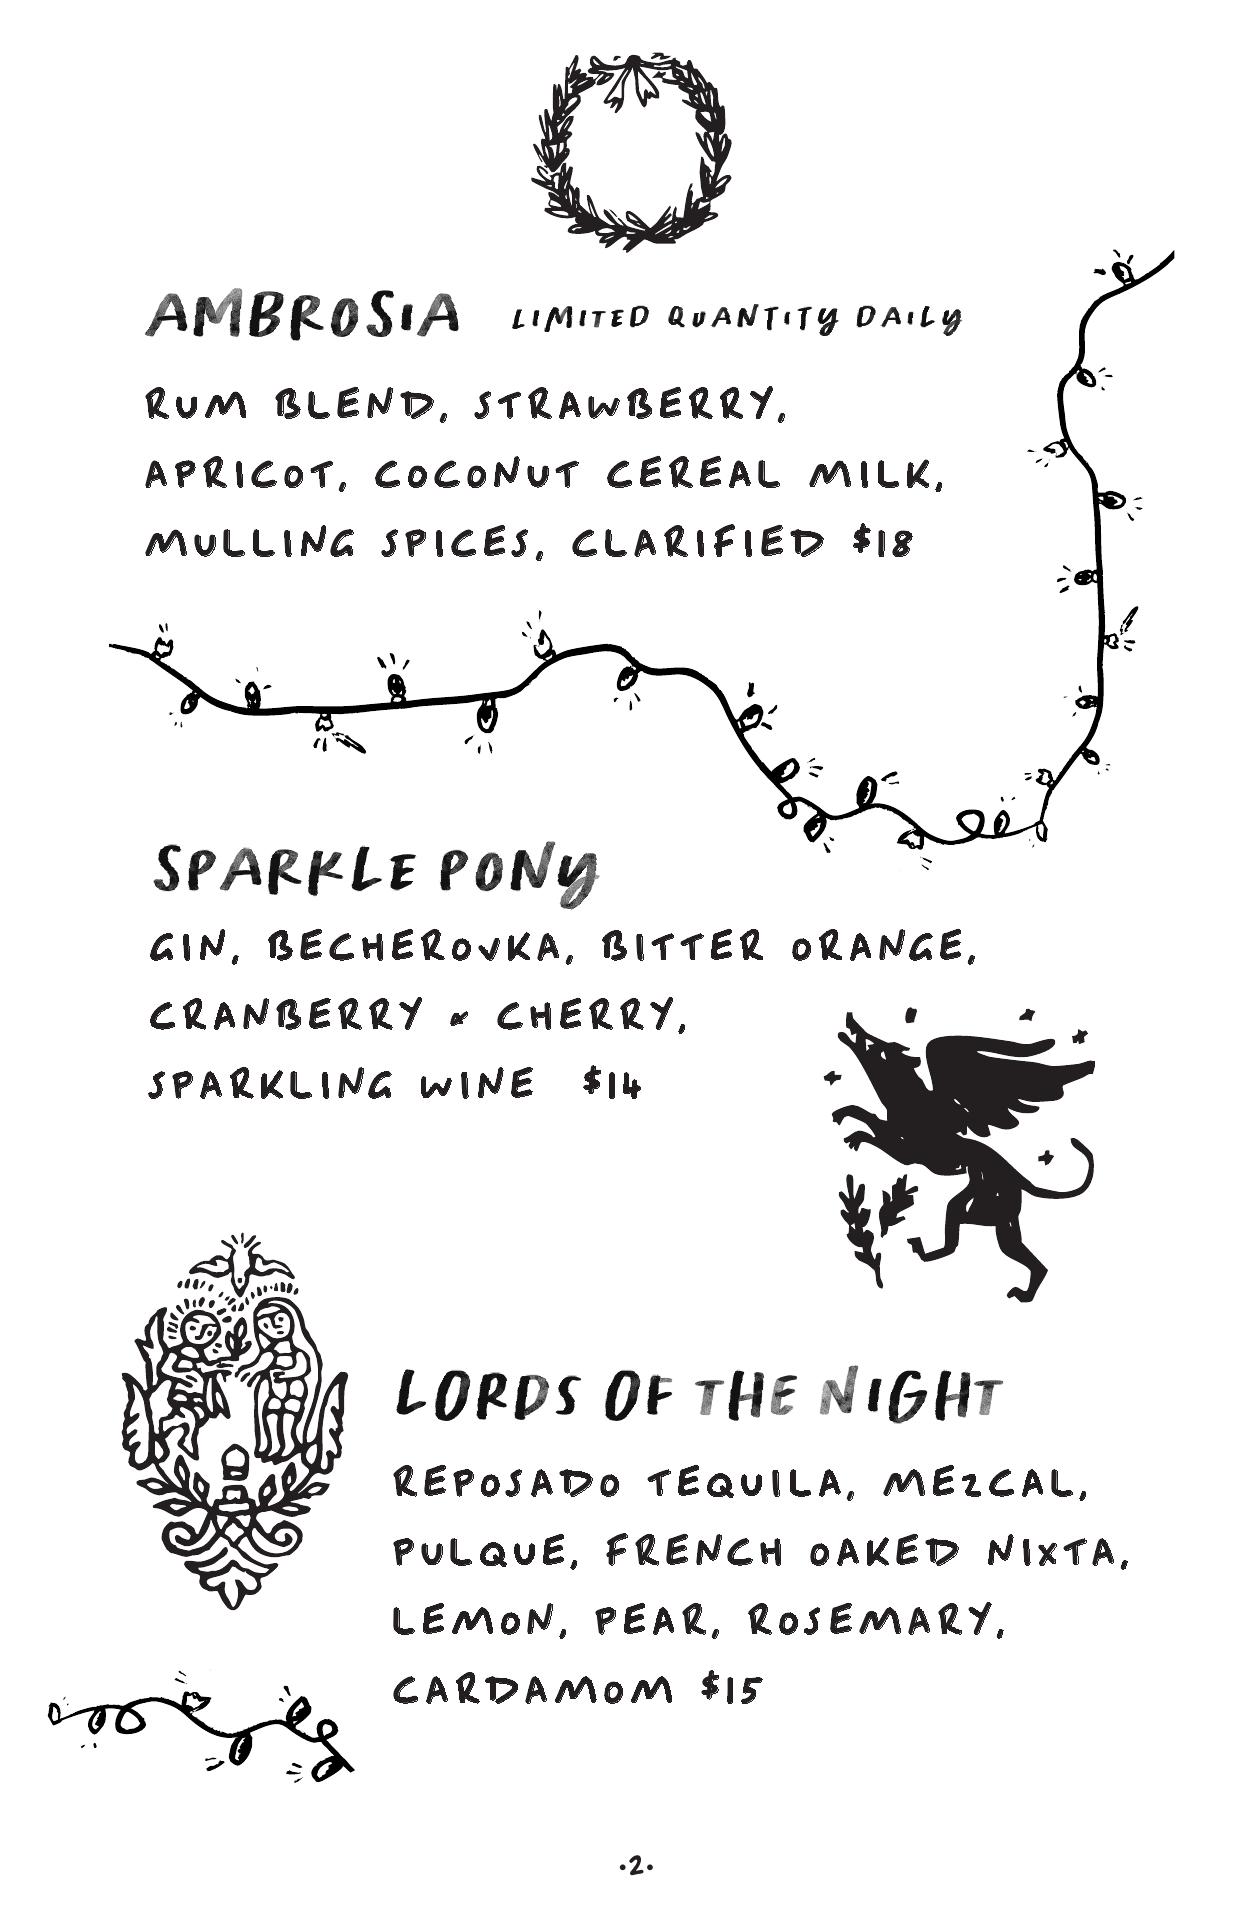 AMBROSIA LIMITED QUANTITY DAILY
RUM BLEND, STRAWBERRY,
APRICOT, COCONUT CEREAL MILK,
MULLING SPICES, CLARIFIED $18
SPARKLE PONY
GIN, BECHEROVKA, BITTER ORANGE,
CRANBERRY & CHERRY,
SPARKLING WINE $14
LORDS OF THE NIGHT
REPOSADO TEQUILA, MEZCAL,
PULQUE, FRENCH OAKED NIXTA,
LEMON, PEAR, ROSEMARY,
CARDAMOM $15
·2·